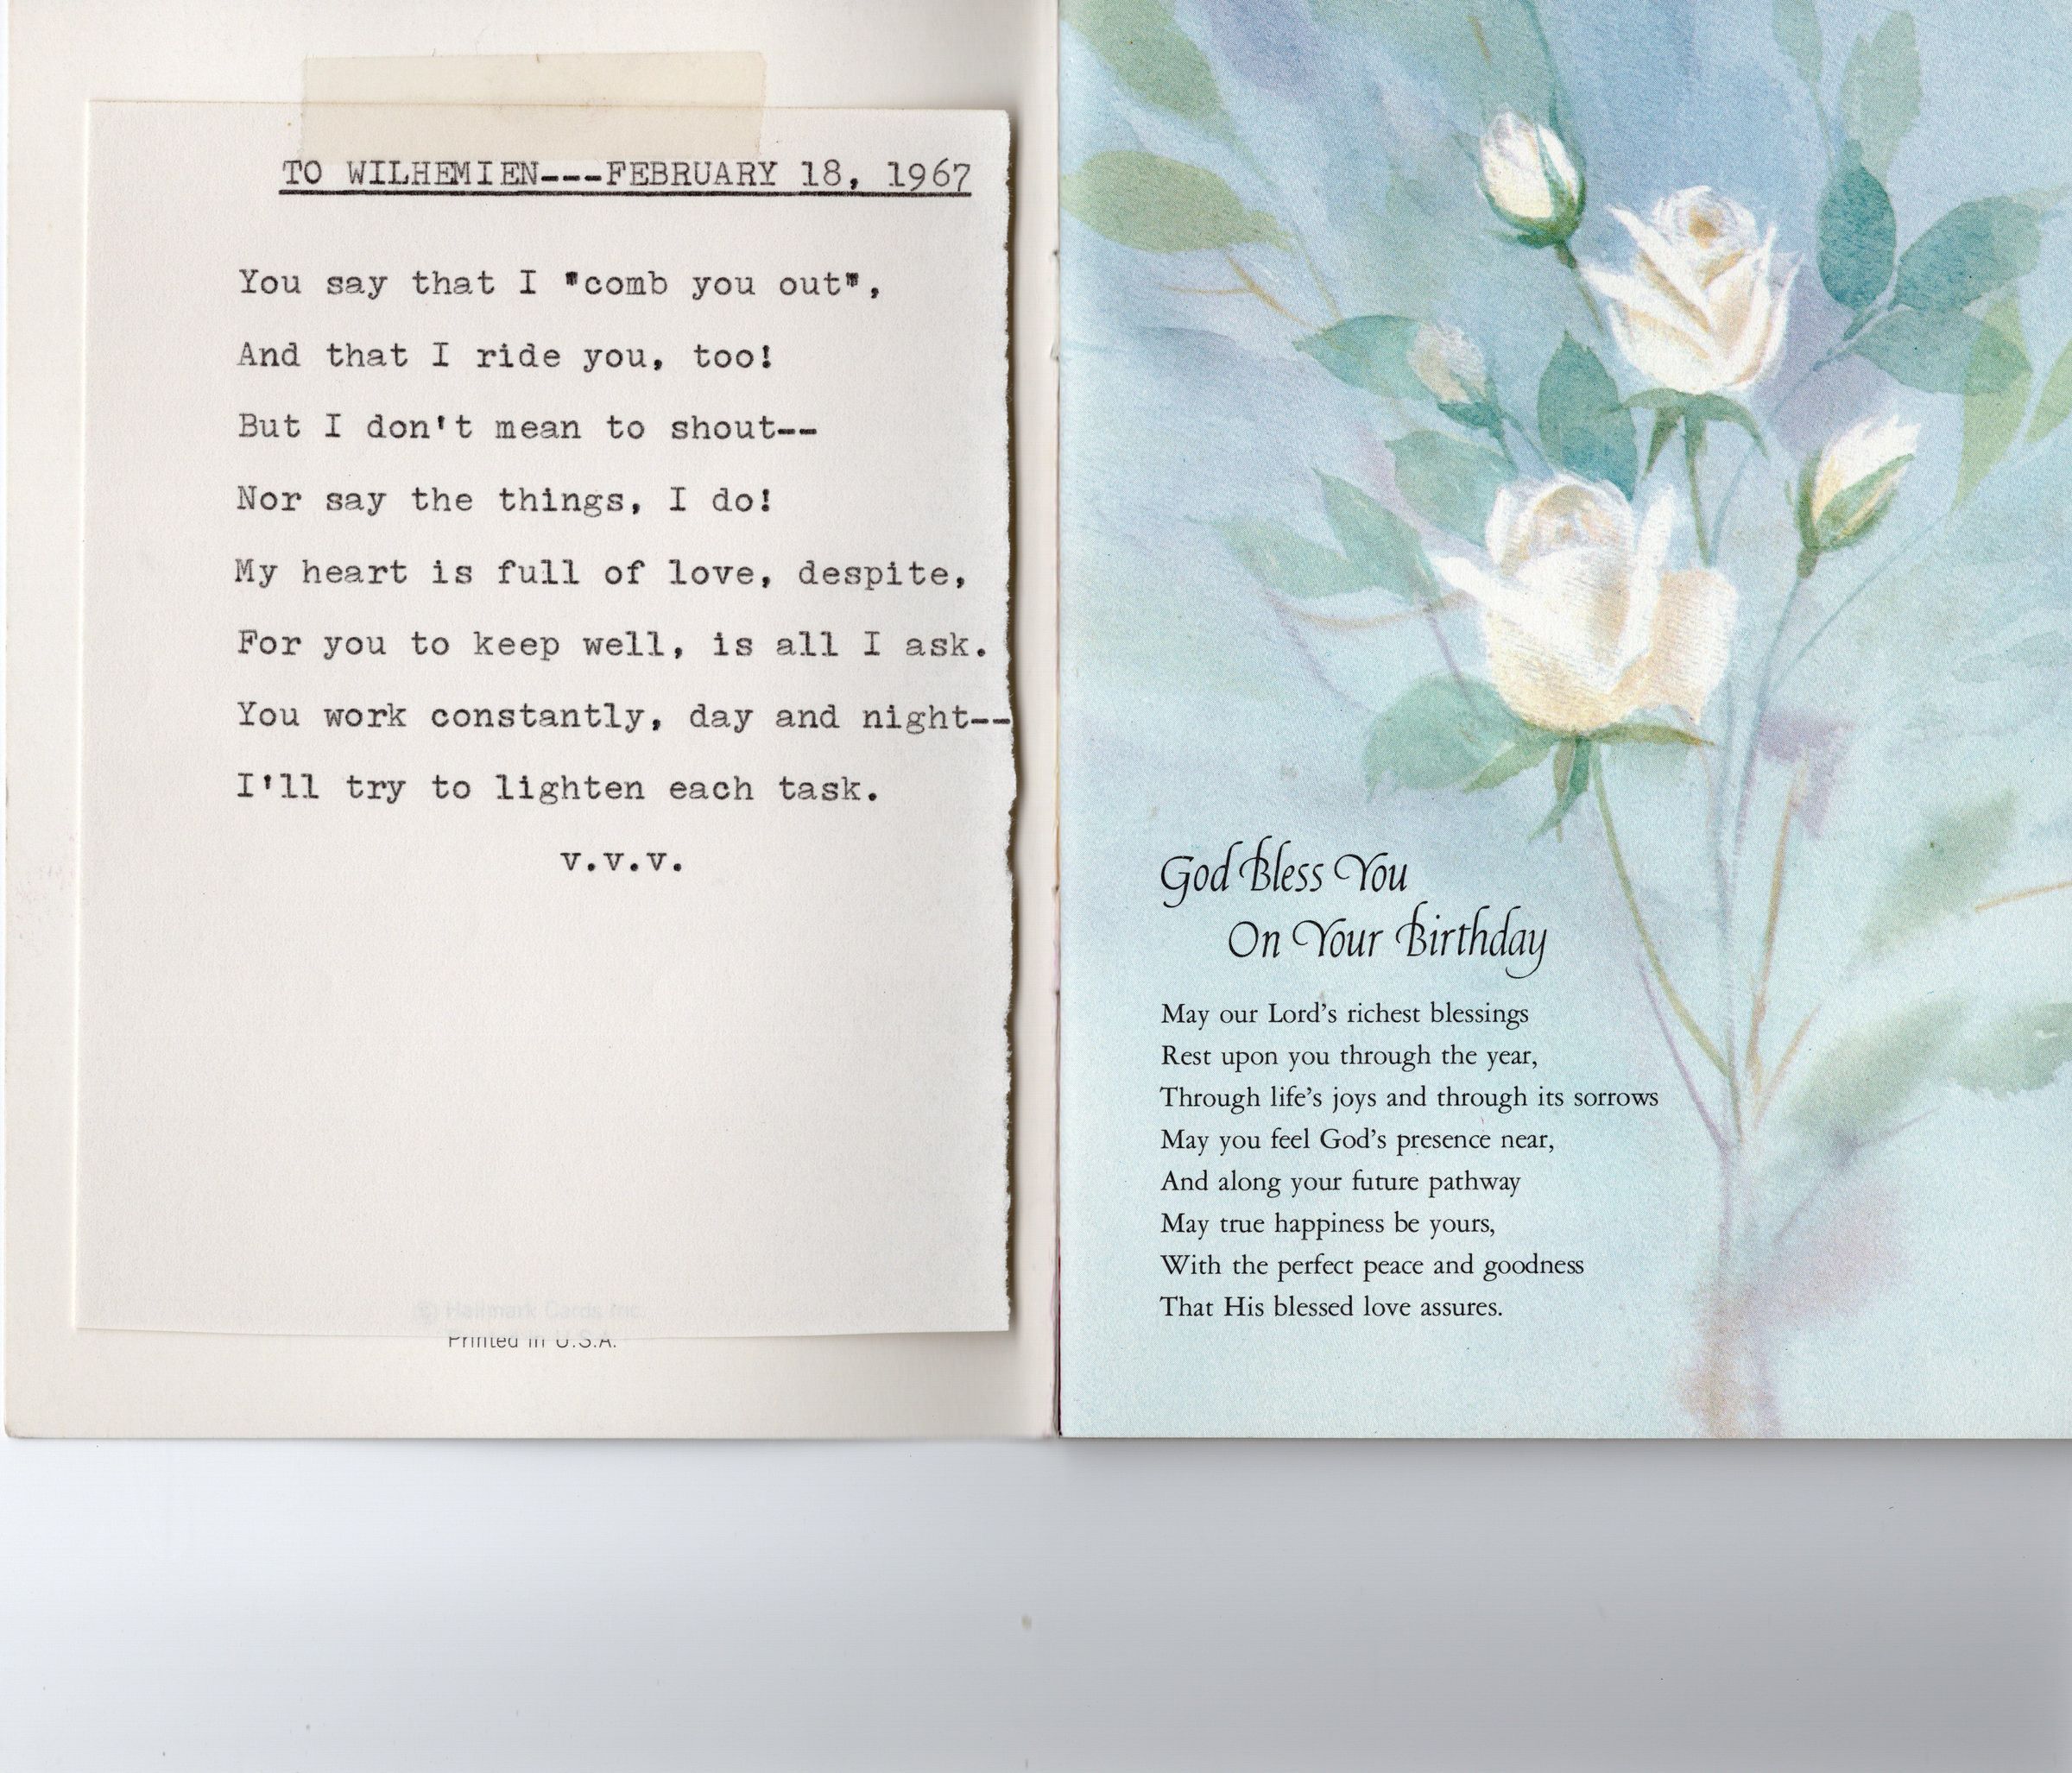 TO WILHEMIEN---FEBRUARY 18, 1967
You say that I "comb you out",
And that I ride you, too!
But I don't mean to shout--
Nor say the things, I do!
My heart is full of love, despite,
For you to keep well, is all I ask.
You work constantly, day and night--
I'll try to lighten each task.
v.v.v.
© Hallmark Cards Inc.
Printed in U.S.A.
God Bless You
On Your Birthday
May our Lord's richest blessings
Rest upon you through the year,
Through life's joys and through its sorrows
May you feel God's presence near,
And along your future pathway
May true happiness be yours,
With the perfect peace and goodness
That His blessed love assures.